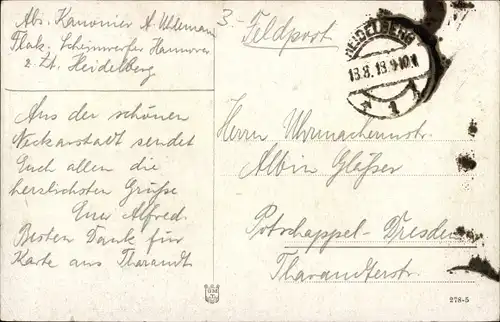 Abs. Kanonier A. Uhlemann
Flak. Scheinwerfer Hannover
z. Zt. Heidelberg
Aus der schönen
Neckarstadt sendet
Euch allen die
herzlichsten Grüße
Euer Alfred.
Besten Dank für
Karte aus Tharandt
3.
Feldpost
HEIDELBERG
13.8.18.9-10V
1
Herrn Uhrmachermstr.
Albin Gläßer
Potschappel-Dresden
Tharandterstr.
278-5